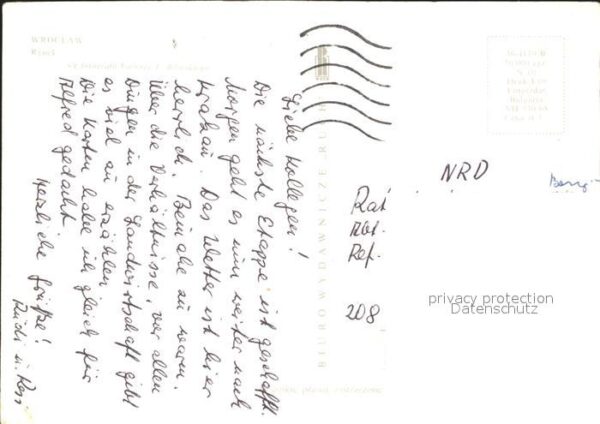 WROCŁAW
Rynek
Liebe Kollegen!
Die nächste Etappe ist geschafft.
Morgen geht es nun weiter nach
Krakau. Das Wetter ist hier
herrlich. Beinahe zu warm.
Über die Verhältnisse, vor allen
Dingen in der Landwirtschaft gibt
es viel zu erzählen.
Die Karten habe ich gleich für
Alfred gedacht
Herzliche Grüße!
Rudi u.
NRD
Rat
Abt.
Ref.
208
privacy protection
Datenschutz